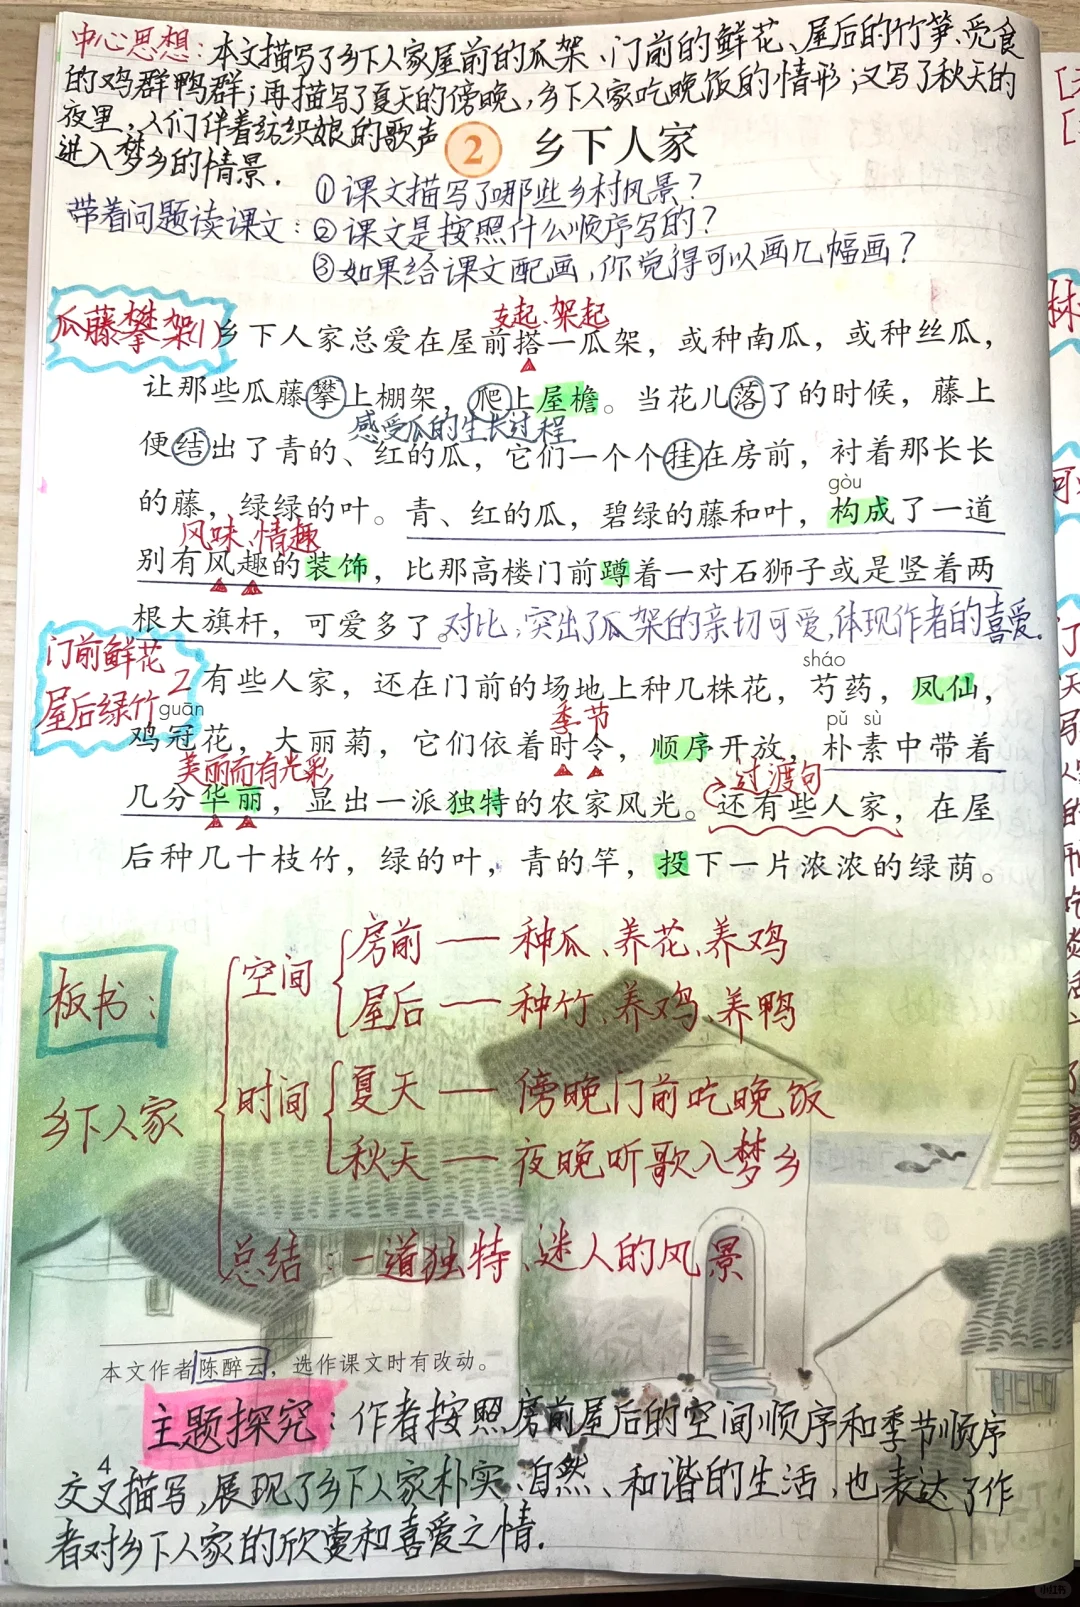 中心思想:本文描写了乡下人家屋前的瓜架、门前的鲜花、屋后的竹笋、觅食
的鸡群鸭群;再描写了夏天的傍晚,乡下人家吃晚饭的情形;又写了秋天的
夜里,人们伴着纺织娘的歌声
进入梦乡的情景.
2 乡下人家
带着问题读课文:
①课文描写了哪些乡村风景?
②课文是按照什么顺序写的?
③如果给课文配画,你觉得可以画几幅画?
支起、架起
瓜藤攀架(1)
乡下人家总爱在屋前搭一瓜架,或种南瓜,或种丝瓜,
让那些瓜藤攀上棚架,爬上屋檐。当花儿落了的时候,藤上
感受瓜的生长过程
便结出了青的、红的瓜,它们一个个挂在房前,衬着那长长
gòu
的藤,绿绿的叶。青、红的瓜,碧绿的藤和叶,构成了一道
风味、情趣
别有风趣的装饰,比那高楼门前蹲着一对石狮子或是竖着两
根大旗杆,可爱多了。
对比,突出了瓜架的亲切可爱,体现作者的喜爱.
门前鲜花
屋后绿竹
2
sháo
有些人家,还在门前的场地上种几株花,芍药,凤仙,
guān
季节
pǔ sù
鸡冠花,大丽菊,它们依着时令,顺序开放,朴素中带着
美丽而有光彩
过渡句
几分华丽,显出一派独特的农家风光。还有些人家,在屋
后种几十枝竹,绿的叶,青的竿,投下一片浓浓的绿荫。
板书:
乡下人家
空间
房前——种瓜、养花、养鸡
屋后——种竹、养鸡、养鸭
时间
夏天——傍晚门前吃晚饭
秋天——夜晚听歌入梦乡
总结:一道独特、迷人的风景
本文作者陈醉云,选作课文时有改动。
主题探究:作者按照房前屋后的空间顺序和季节顺序
4
交叉描写,展现了乡下人家朴实、自然、和谐的生活,也表达了作
者对乡下人家的欣赏和喜爱之情.